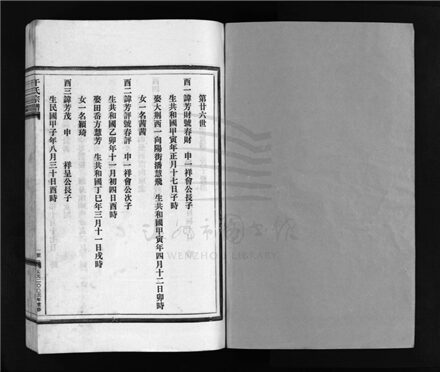 第廿六世
酉一諱芳財號春財　申一祥會公長子
生共和國甲寅年正月十七日子時
娶大荆西一向陽街潘慧飛　生共和國甲寅年四月十二日卯時
女一名茜茜
酉二諱芳評號春評　申一祥會公次子
生共和國乙卯年十一月初四日酉時
娶田岙方慧芳　生共和國丁巳年三月十一日戌時
女一名穎琦
酉三諱芳茂　申　祥呈公長子
生民國甲子年八月三十日酉時
氏宗譜
WENZHOU LIBRARY